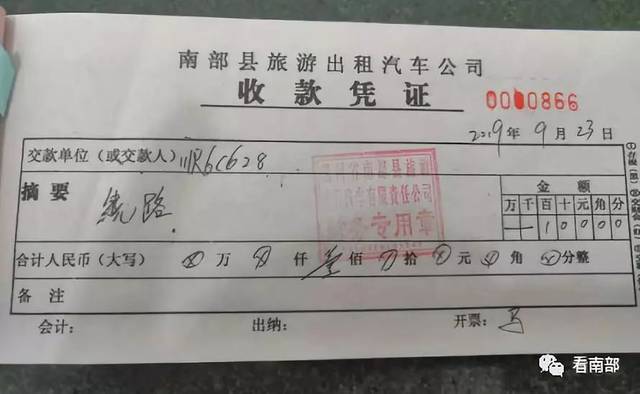 南部县旅游出租汽车公司
收款凭证
0000866
2019年9月23日
交款单位（或交款人）川R6C628
摘要 绕路
金额
万千百十元角分
10000
合计人民币（大写） 万 仟壹佰 拾 元 角 分整
备注
会计： 出纳： 开票：
专用章
看南部